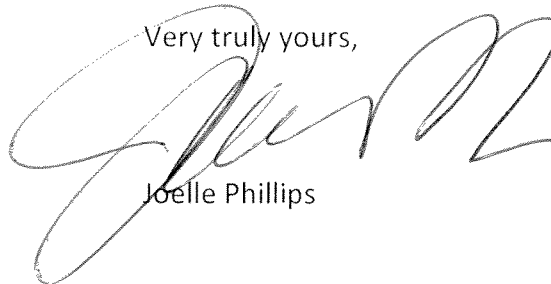 Very truly yours,
Joelle Phillips